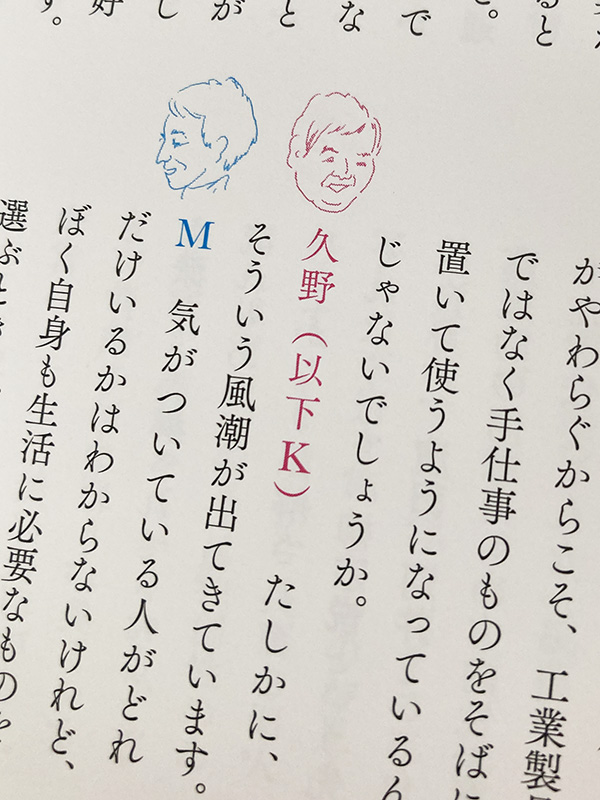 ると
と。
で
な
と
が
し
好
す。
がやわらぐからこそ、工業製
ではなく手仕事のものをそばに
置いて使うようになっているん
じゃないでしょうか。
久野(以下K) たしかに、
そういう風潮が出てきています。
M 気がついている人がどれ
だけいるかはわからないけれど、
ぼく自身も生活に必要なものを
選ぶとき